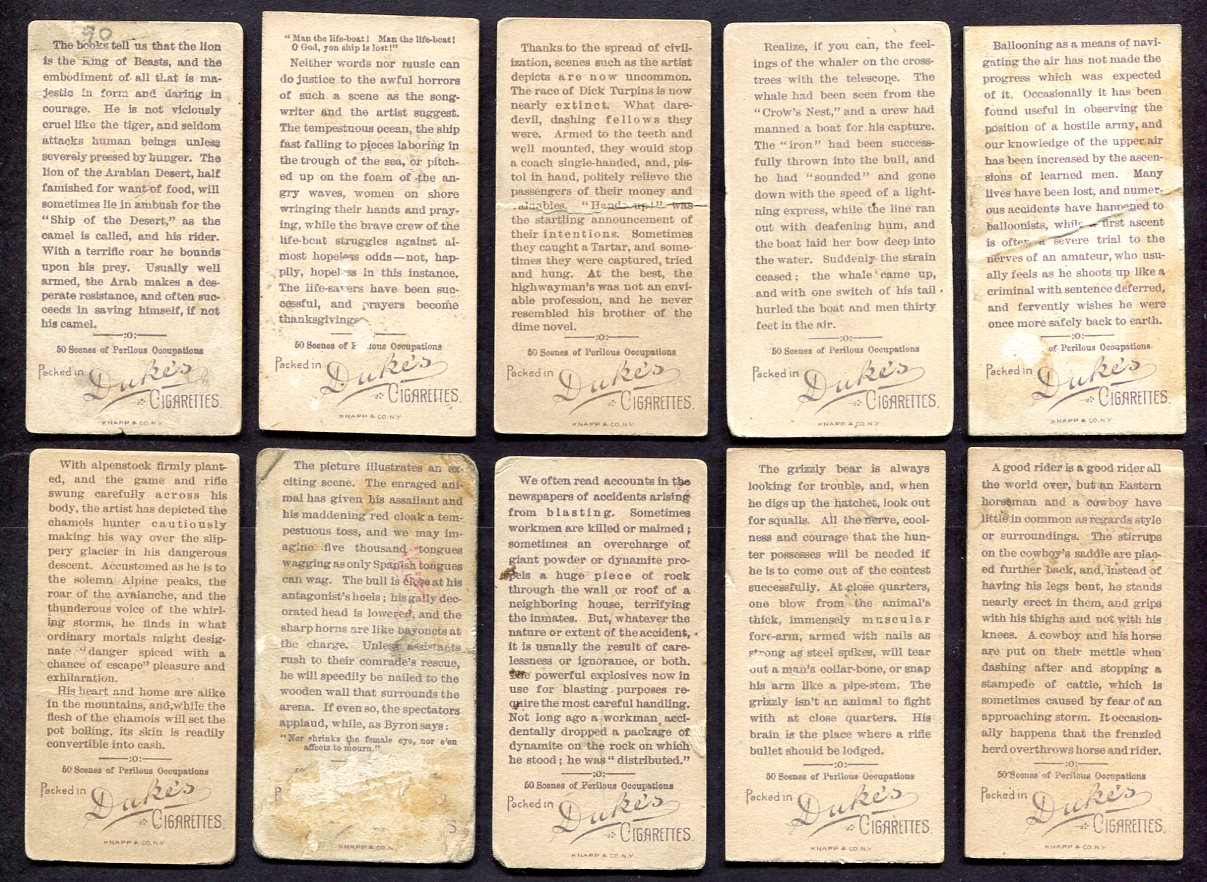 90
The books tell us that the lion
is the King of Beasts, and the
embodiment of all that is ma-
jestic in form and daring in
courage. He is not viciously
cruel like the tiger, and seldom
attacks human beings unless
severely pressed by hunger. The
lion of the Arabian Desert, half
famished for want of food, will
sometimes lie in ambush for the
"Ship of the Desert," as the
camel is called, and his rider.
With a terrific roar he bounds
upon his prey. Usually well
armed, the Arab makes a des-
perate resistance, and often suc-
ceeds in saving himself, if not
his camel.
—:o:—
50 Scenes of Perilous Occupations
Packed in
Duke's
CIGARETTES.
KNAPP & CO. N.Y.
"Man the life-boat! Man the life-boat!
O God, yon ship is lost!"
Neither words nor music can
do justice to the awful horrors
of such a scene as the song-
writer and the artist suggest.
The tempestuous ocean, the ship
fast falling to pieces laboring in
the trough of the sea, or pitch-
ed up on the foam of the an-
gry waves, women on shore
wringing their hands and pray-
ing, while the brave crew of the
life-boat struggles against al-
most hopeless odds—not, hap-
pily, hopeless in this instance.
The life-savers have been suc-
cessful, and prayers become
thanksgivings
50 Scenes of Perilous Occupations
Packed in
Duke's
CIGARETTES.
KNAPP & CO. N.Y.
Thanks to the spread of civil-
ization, scenes such as the artist
depicts are now uncommon.
The race of Dick Turpins is now
nearly extinct. What dare-
devil, dashing fellows they
were. Armed to the teeth and
well mounted, they would stop
a coach single-handed, and, pis-
tol in hand, politely relieve the
passengers of their money and
valuables. "Hands up!" was
the startling announcement of
their intentions. Sometimes
they caught a Tartar, and some-
times they were captured, tried
and hung. At the best, the
highwayman's was not an envi-
able profession, and he never
resembled his brother of the
dime novel.
—:o:—
50 Scenes of Perilous Occupations
Packed in
Duke's
CIGARETTES.
KNAPP & CO. N.Y.
Realize, if you can, the feel-
ings of the whaler on the cross-
trees with the telescope. The
whale had been seen from the
"Crow's Nest," and a crew had
manned a boat for his capture.
The "iron" had been success-
fully thrown into the bull, and
he had "sounded" and gone
down with the speed of a light-
ning express, while the line ran
out with deafening hum, and
the boat laid her bow deep into
the water. Suddenly the strain
ceased; the whale came up,
and with one switch of his tail
hurled the boat and men thirty
feet in the air.
—:o:—
50 Scenes of Perilous Occupations
Packed in
Duke's
CIGARETTES.
KNAPP & CO. N.Y.
Ballooning as a means of navi-
gating the air has not made the
progress which was expected
of it. Occasionally it has been
found useful in observing the
position of a hostile army, and
our knowledge of the upper air
has been increased by the ascen-
sions of learned men. Many
lives have been lost, and numer-
ous accidents have happened to
balloonists, while a first ascent
is often a severe trial to the
nerves of an amateur, who usu-
ally feels as he shoots up like a
criminal with sentence deferred,
and fervently wishes he were
once more safely back to earth.
—:o:—
of Perilous Occupations
Packed in
Duke's
CIGARETTES.
KNAPP & CO. N.Y.
With alpenstock firmly plant-
ed, and the game and rifle
swung carefully across his
body, the artist has depicted the
chamois hunter cautiously
making his way over the slip-
pery glacier in his dangerous
descent. Accustomed as he is to
the solemn Alpine peaks, the
roar of the avalanche, and the
thunderous voice of the whirl-
ing storms, he finds in what
ordinary mortals might desig-
nate "danger spiced with a
chance of escape" pleasure and
exhilaration.
His heart and home are alike
in the mountains, and, while the
flesh of the chamois will set the
pot boiling, its skin is readily
convertible into cash.
—:o:—
50 Scenes of Perilous Occupations
Packed in
Duke's
CIGARETTES.
KNAPP & CO. N.Y.
The picture illustrates an ex-
citing scene. The enraged ani-
mal has given his assailant and
his maddening red cloak a tem-
pestuous toss, and we may im-
agine five thousand tongues
wagging as only Spanish tongues
can wag. The bull is close at his
antagonist's heels; his gaily dec-
orated head is lowered, and the
sharp horns are like bayonets at
the charge. Unless assistants
rush to their comrade's rescue,
he will speedily be nailed to the
wooden wall that surrounds the
arena. If even so, the spectators
applaud, while, as Byron says:
"Nor shrinks the female eye, nor e'en
affects to mourn."
KNAPP & CO. N
We often read accounts in the
newspapers of accidents arising
from blasting. Sometimes
workmen are killed or maimed;
sometimes an overcharge of
giant powder or dynamite pro-
pels a huge piece of rock
through the wall or roof of a
neighboring house, terrifying
the inmates. But, whatever the
nature or extent of the accident,
it is usually the result of care-
lessness or ignorance, or both.
The powerful explosives now in
use for blasting purposes re-
quire the most careful handling.
Not long ago a workman acci-
dentally dropped a package of
dynamite on the rock on which
he stood; he was "distributed."
—:o:—
50 Scenes of Perilous Occupations
Packed in
Duke's
CIGARETTES.
KNAPP & CO. N.Y.
The grizzly bear is always
looking for trouble, and, when
he digs up the hatchet, look out
for squalls. All the nerve, cool-
ness and courage that the hun-
ter possesses will be needed if
he is to come out of the contest
successfully. At close quarters,
one blow from the animal's
thick, immensely muscular
fore-arm, armed with nails as
strong as steel spikes, will tear
out a man's collar-bone, or snap
his arm like a pipe-stem. The
grizzly isn't an animal to fight
with at close quarters. His
brain is the place where a rifle
bullet should be lodged.
—:o:—
50 Scenes of Perilous Occupations
Packed in
Duke's
CIGARETTES.
KNAPP & CO. N.Y.
A good rider is a good rider all
the world over, but an Eastern
horseman and a cowboy have
little in common as regards style
or surroundings. The stirrups
on the cowboy's saddle are plac-
ed further back, and, instead of
having his legs bent, he stands
nearly erect in them, and grips
with his thighs and not with his
knees. A cowboy and his horse
are put on their mettle when
dashing after and stopping a
stampede of cattle, which is
sometimes caused by fear of an
approaching storm. It occasion-
ally happens that the frenzied
herd overthrows horse and rider.
—:o:—
50 Scenes of Perilous Occupations
Packed in
Duke's
CIGARETTES.
KNAPP & CO. N.Y.